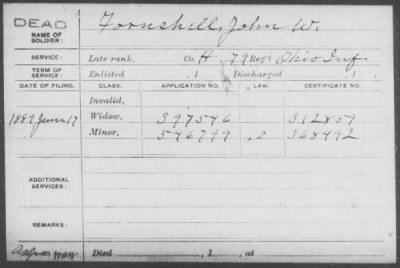 DEAD
NAME OF SOLDIER: Fornshell, John W.
SERVICE: Late rank, Co. H, 79 Reg't Ohio Inf.
TERM OF SERVICE: Enlisted , 1 Discharged , 1
DATE OF FILING. CLASS. APPLICATION NO. LAW. CERTIFICATE NO.
Invalid,
1889 June 17 Widow, 397546 312859
Minor, 546799 368492
ADDITIONAL SERVICES:
REMARKS:
Died , 1 , at